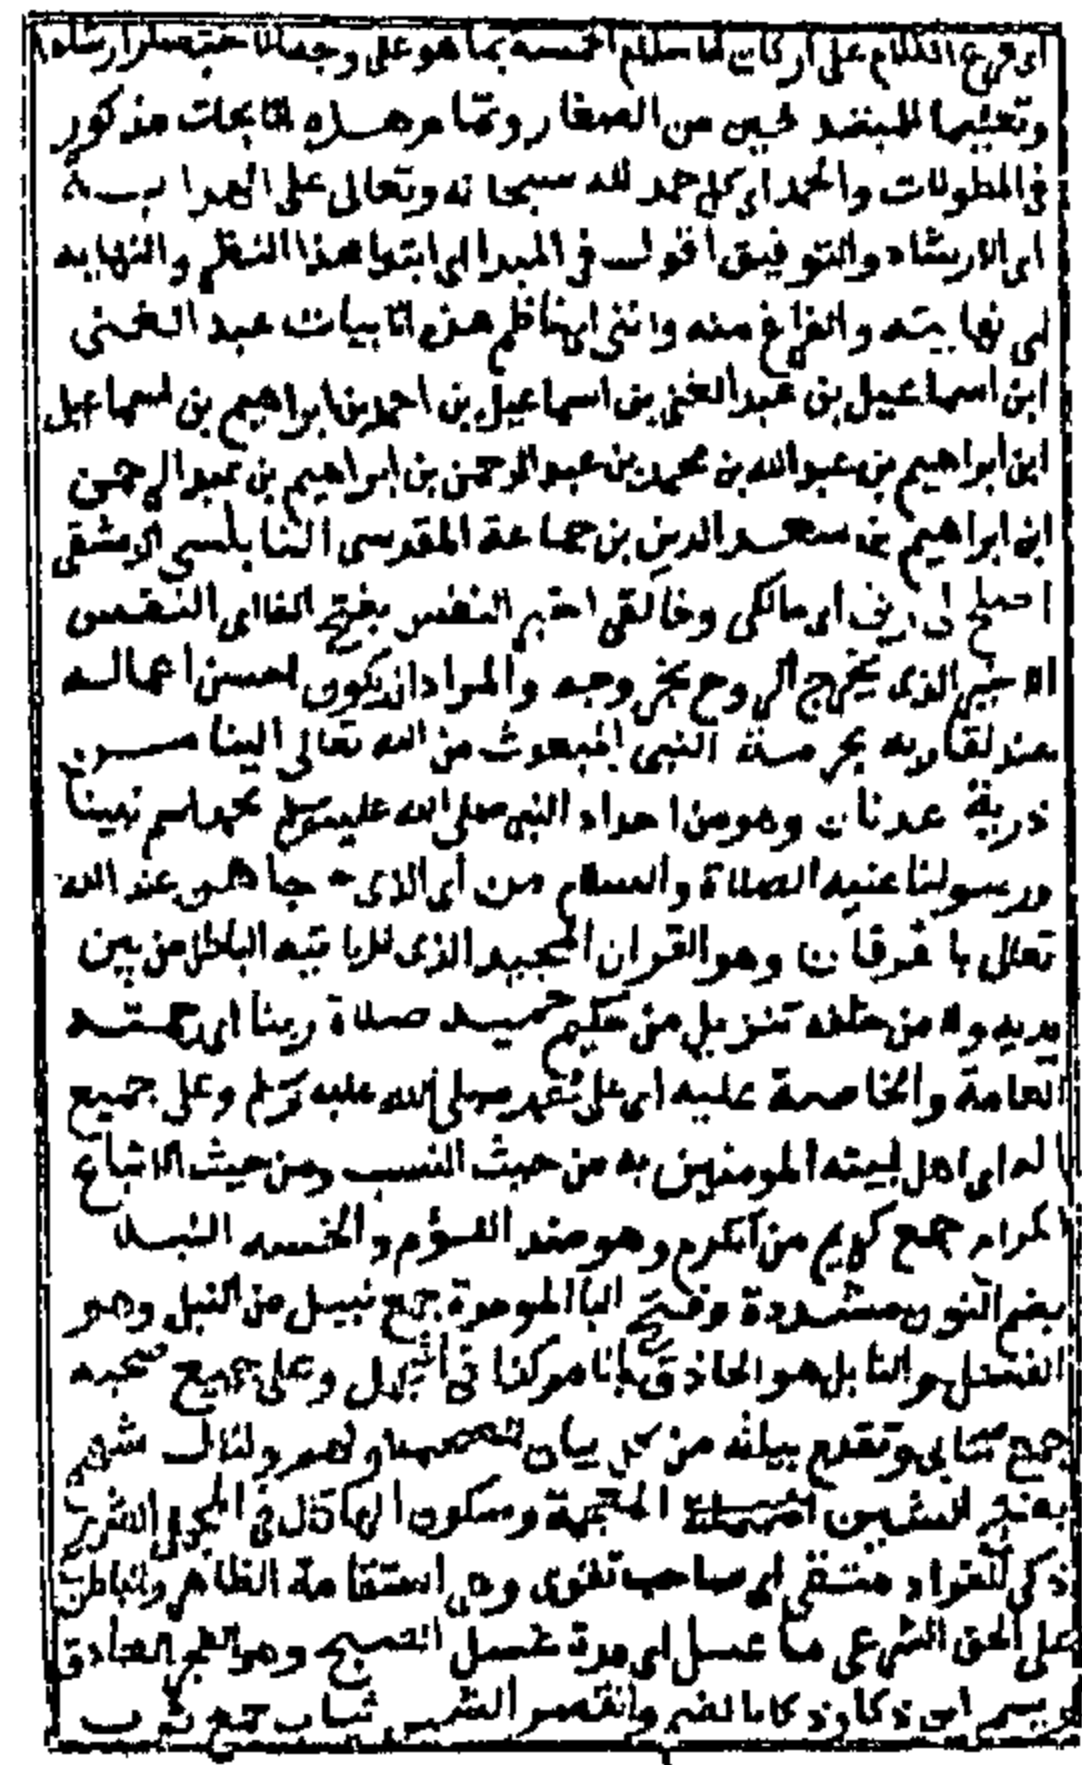 اى فرغ الكلام على اركان الاسلام الخمسه بما هو على وجه الاختصار ارشادا
وتعليما للمبتدئين من الصغار وتمام هذه الابحاث مذكور
فى المطولات والحمد اى كل حمد لله سبحانه وتعالى على الهداية
اى الارشاد والتوفيق اقول فى المبدا اى ابتدا هذا النظم والنهايه
اى نهايته والفراغ منه واننى اى ناظم هذه الابيات عبد الغنى
ابن اسماعيل بن عبد الغنى بن اسماعيل بن احمد بن ابراهيم بن اسماعيل
ابن ابراهيم بن عبد الله بن محمد بن عبد الرحمن بن ابراهيم بن عبد الرحمن
ابن ابراهيم بن سعد الدين بن جماعة المقدسى النابلسي الدمشقى
اصلح لى ربى اى مالكى وخالقى اخير النفس بفتح الفا اى النفس
الاخير الذى يخرج الروح بخروجه والمراد ان يكون احسن اعماله
عند لقا ربه بحرمة النبى المبعوث من الله تعالى الينا من
ذرية عدنان وهو من اجداد النبى صلى الله عليه وسلم محمد اسم نبينا
ورسولنا عليه الصلاة والسلام من اى الذى جا من عند الله
تعالى با فرقان وهو القران المجيد الذى لا ياتيه الباطل من بين
يديه ولا من خلفه تنزيل من حكيم حميد صلاة ربنا اى رحمته
العامة والخاصة عليه اى على محمد صلى الله عليه وسلم وعلى جميع
اله اى اهل بيته المومنين به من حيث النسب ومن حيث الاتباع
الكرام جمع كريم من الكرم وهو ضد اللؤم والخسه النبلا
بضم النون مشددة وفتح البا الموحدة جمع نبيل من النبل وهو
الفضل والنابل هو الحاذق وعلى جميع صحبه
جمع صاحب وتقدم بيانه من كل بيان
بفتح الشين المعجمة وسكون الها
ذكى الفواد متقى اى صاحب تقوى وهى استقامة الظاهر والباطن
على الحق الشرعى ما غسل اى مدة غسل الصبح وهو الفجر الصادق
ويسمى ابن ذكا وذكا بالضم والقصر الشمس ثياب جمع ثوب